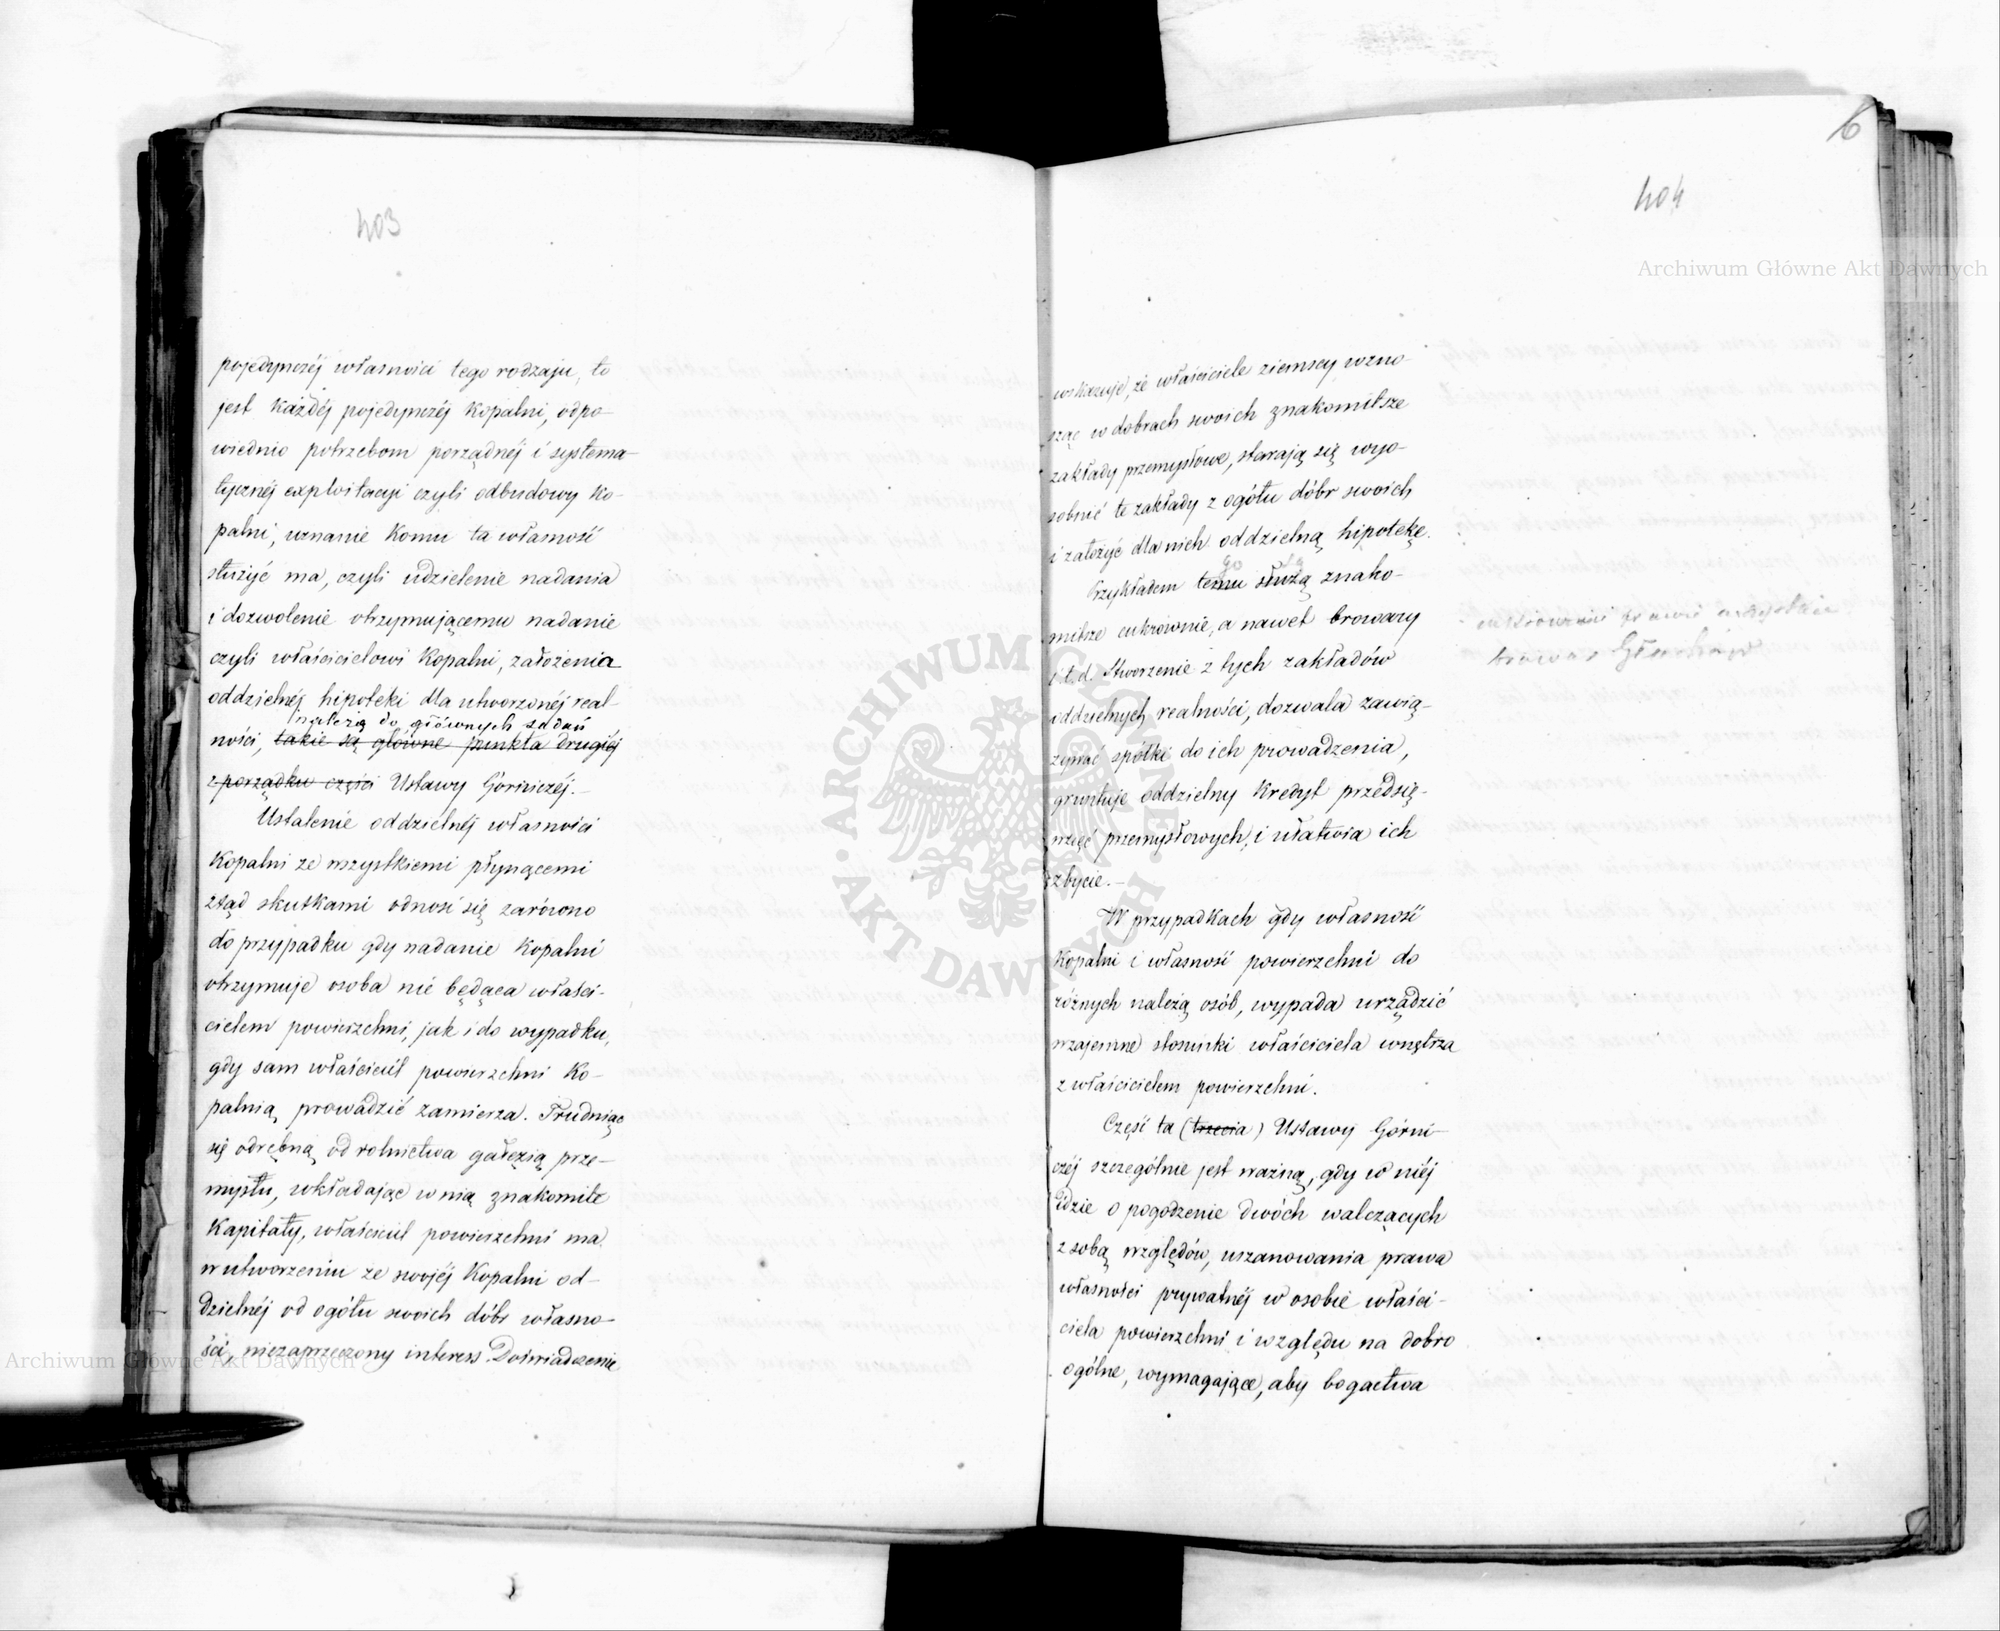 403
pojedynczéj własności tego rodzaju, to
jest każdéj pojedynczéj Kopalni, odpo-
wiednio potrzebom porządnéj i systema-
tycznéj exploitacyi czyli odbudowy Ko-
palni, uznanie Komu ta własność
służyć ma, czyli udzielenie nadania
i dozwolenie otrzymującemu nadanie
czyli właścicielowi Kopalni, założenia
oddzielnéj hipoteki dla utworzonéj real-
należą do głównych zadań
ności, takie są główne punkta drugiéj
z porządku części Ustawy Górniczéj.-
Ustalenie oddzielnéj własności
Kopalni ze wszystkiemi płynącemi
ztąd skutkami odnosi się zarówno
do przypadku gdy nadanie Kopalni
otrzymuje osoba nie będąca właści-
cielem powierzchni, jak i do wypadku,
gdy sam właściciel powierzchni Ko-
palnią prowadzić zamierza. Trudniąc
się odrębną od rolnictwa gałęzią prze-
mysłu, wkładając w nią znakomite
Kapitały, właściciel powierzchni ma
w utworzeniu ze swojéj Kopalni od-
dzielnéj od ogółu swoich dóbr własno-
ści, niezaprzeczony interess. Doświadczenie
6
404
wskazuje, że właściciele ziemscy wzno-
sząc w dobrach swoich znakomitsze
zakłady przemysłowe, starają się wyo-
sobnić te zakłady z ogółu dóbr swoich
i założyć dla nich oddzielną hipotekę.
go
Przykładem temu służą znako-
mitsze cukrownie, a nawet browary
i t. d. Stworzenie z tych zakładów
oddzielnych realności, dozwala zawią-
zywać spółki do ich prowadzenia,
gruntuje oddzielny Kredyt przedsię-
wzięć przemysłowych, i ułatwia ich
zbycie.-
W przypadkach gdy własność
Kopalni i własność powierzchni do
różnych należą osób, wypada urządzić
wzajemne stosunki właściciela wnętrza
z właścicielem powierzchni.
Część ta (trzecia) Ustawy Górni-
czéj szczególnie jest ważną, gdy w niéj
idzie o pogodzenie dwóch walczących
z sobą względów, uszanowania prawa
własności prywatnéj w osobie właści-
ciela powierzchni i względu na dobro
ogólne, wymagające, aby bogactwa
Archiwum Główne Akt Dawnych
ARCHIWUM GŁÓWNE AKT DAWNYCH
Archiwum Główne Akt Dawnych